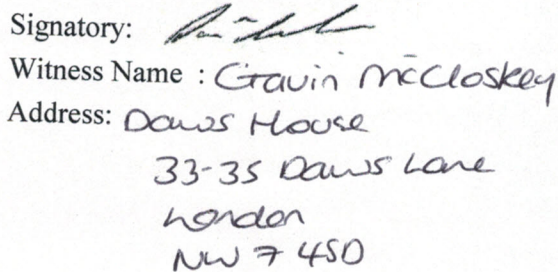 Signatory:
Witness Name : Gavin McCloskey
Address: Daws House
33-35 Daws Lane
London
NW7 4SD